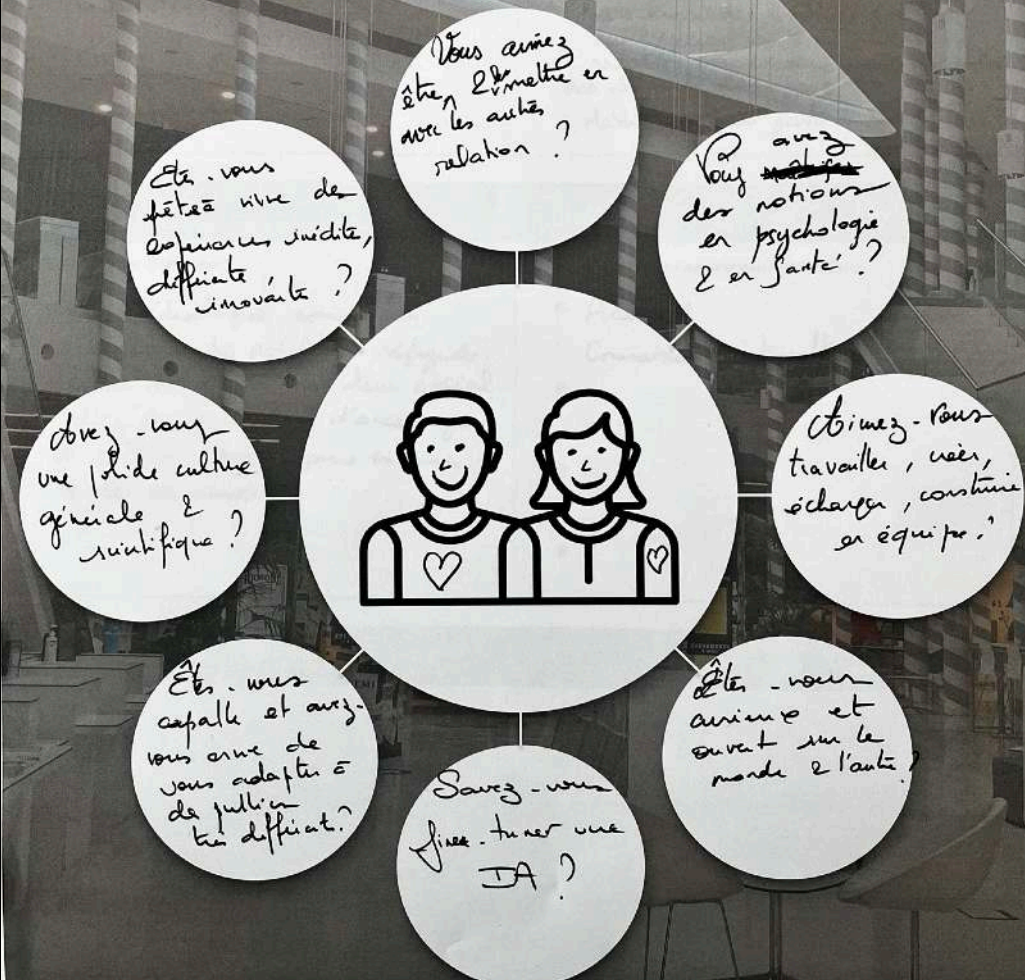 Vous aimez
être, & les mettre en
avec les autres
relation ?
Vous avez
des notions
en psychologie
& en santé ?
Aimez-vous
travailler, créer,
échanger, construire
en équipe ?
Êtes-vous
curieux et
ouvert sur le
monde & l'autre ?
Savez-vous
fine-tuner une
IA ?
Êtes-vous
capable et avez-
vous envie de
vous adapter à
de publics
très différents ?
Avez-vous
une solide culture
générale &
scientifique ?
Etes-vous
prêt à vivre des
expériences inédites,
différentes
innovantes ?